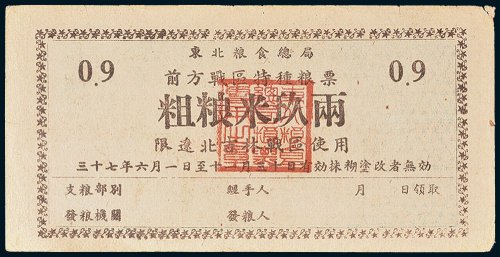 東北粮食總局
0.9 前方戰區特種粮票 0.9
粗粮米玖兩
限遼北吉林戰區使用
三十七年六月一日至十一月三十日有効抹糊塗改者無効
支粮部別 經手人 月 日領取
發粮機關 發粮人